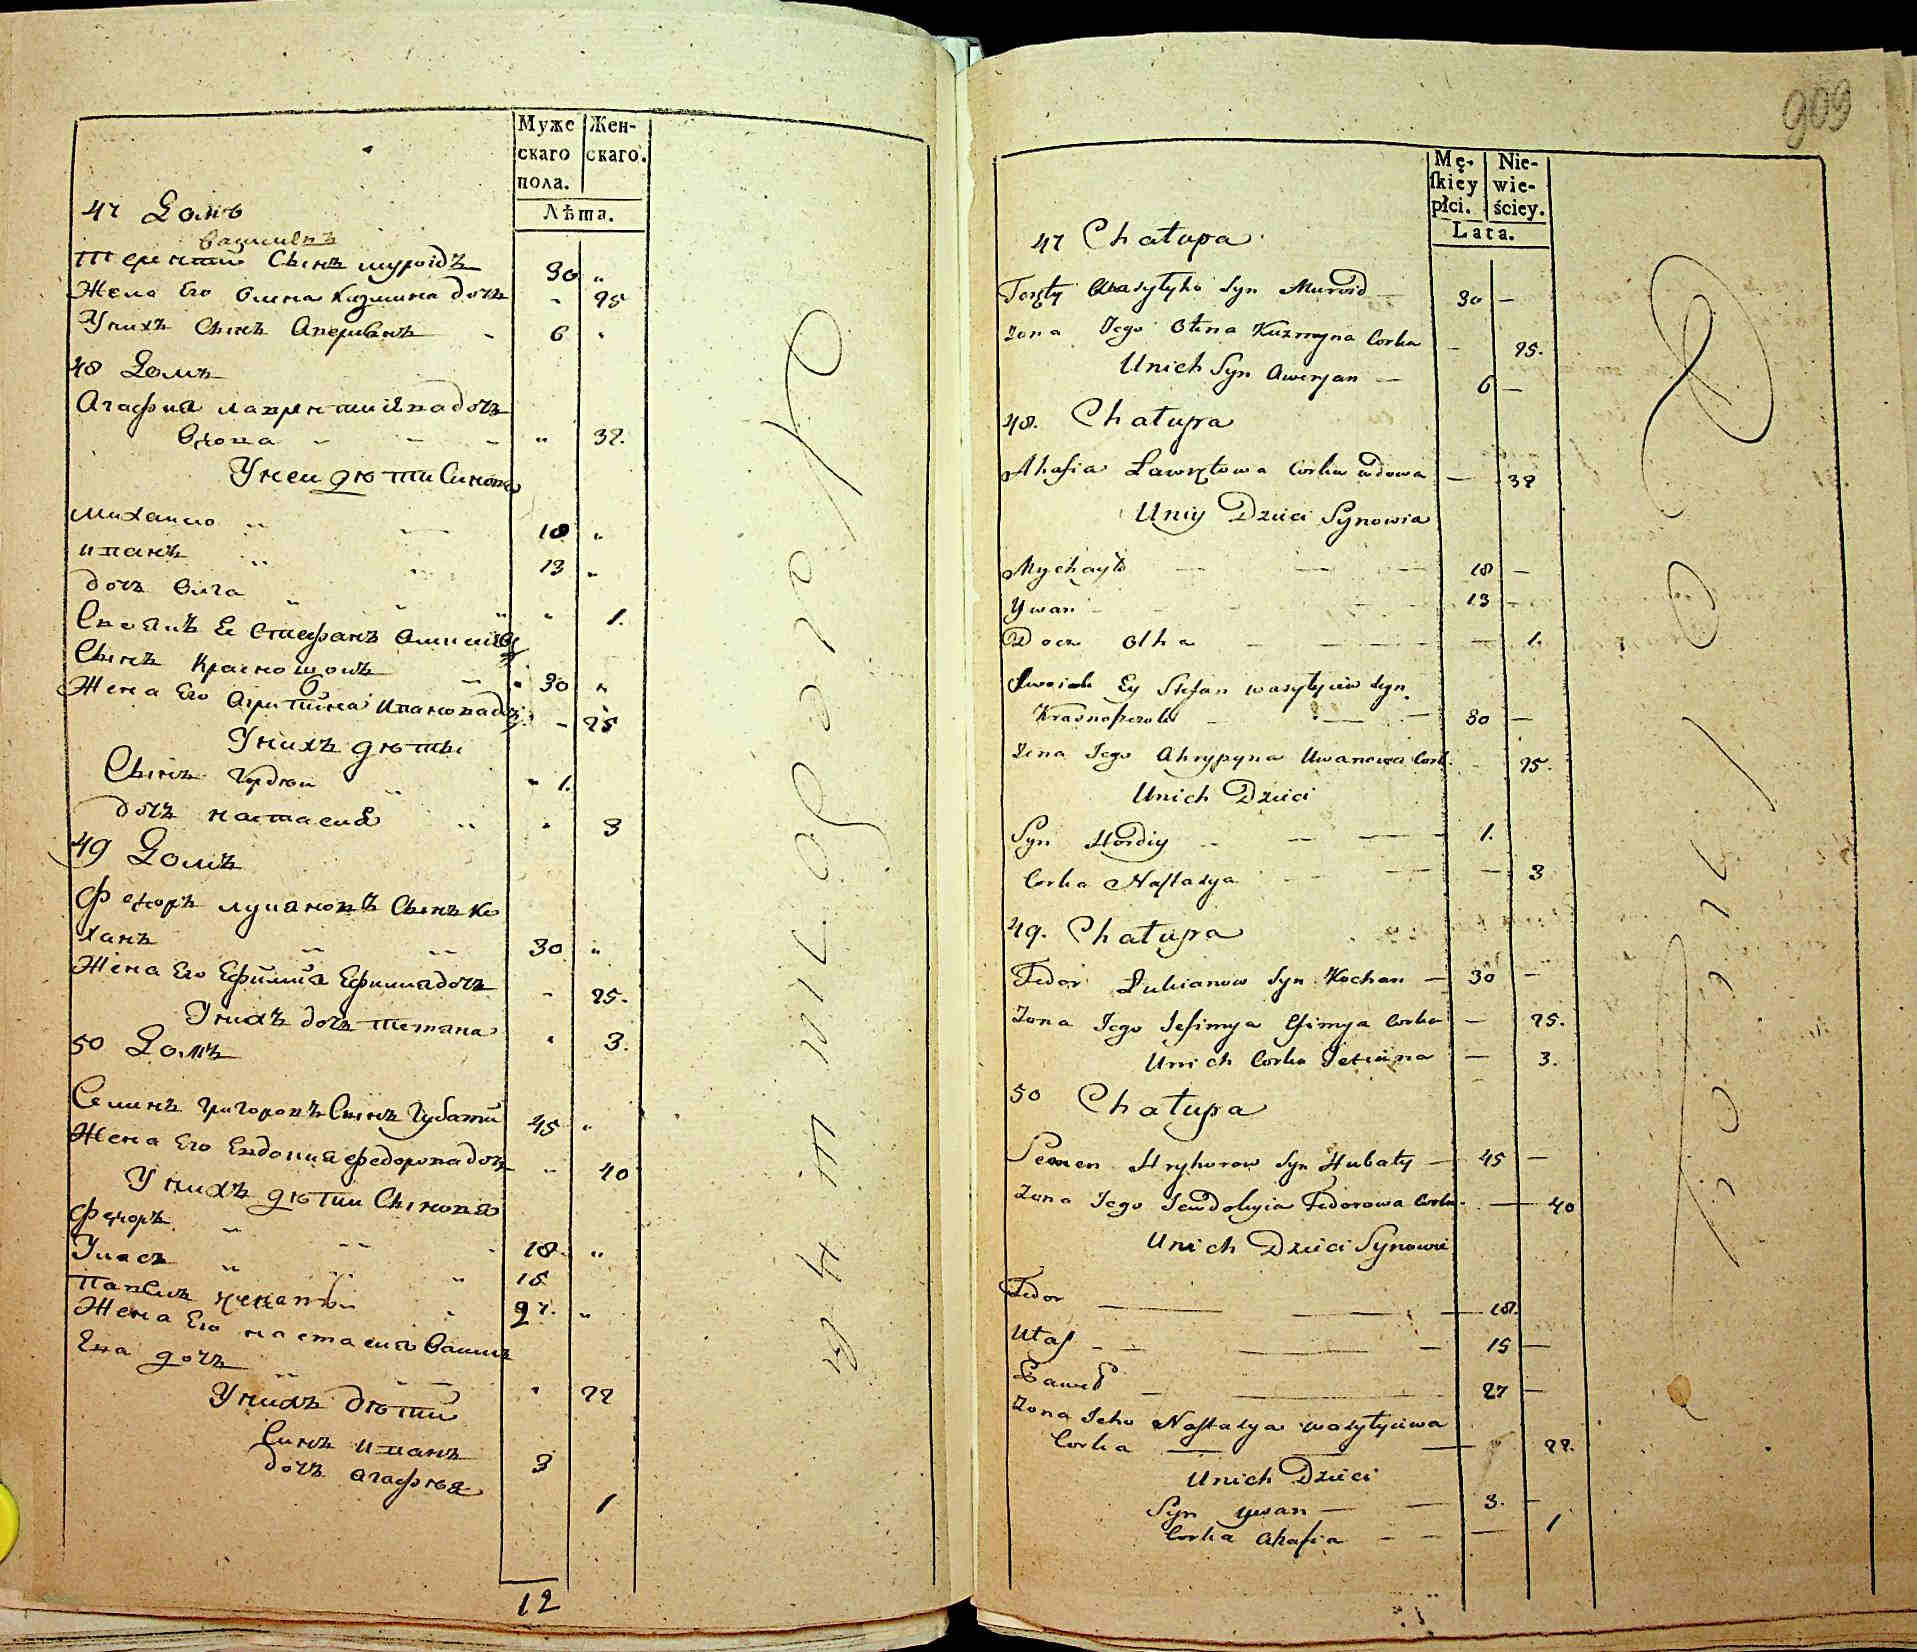 Муже
скаго
пола.
Жен-
скаго.
Лѣта.
47 Домъ
Василевъ
Терентий Сынъ муроідъ 30 „
Жена Его Олина Кузмина дочъ - 25
Унихъ Сынъ Аверианъ - 6 „
48 Домъ
Агафия лаврентиява дочъ
Вдова - - - „ 32.
Унеи дѣти Синови
Михаило 18 „
иванъ 13 „
дочъ Олга „ 1.
Своякъ Ее Стефанъ
Сынъ Красношопъ 30 „
Жена Его Агрипина Иванова дочъ - 25
Унихъ дѣты
Сынъ Гордѣи 1.
дочъ настасия „ 3
49 Домъ
Федоръ лукяновъ Сынъ Ко
ханъ 30 „
Жена Его Ефимия Ефимиа дочъ - 25.
Унихъ дочъ тетяна „ 3.
50 Домъ
Семинъ григоровъ Сынъ Губатий 45 „
Жена Его Евдокия федорова дочъ 40
Унихъ дѣти Сыновя
Федоръ 18. „
Уласъ 15
Павелъ 27. „
Жена Его настасия Васил
Ева дочъ „ 22
Унихъ дѣтий
Синъ иванъ 3
дочъ агафия 1
12
909
Mę-
skiey
płci.
Nie-
wie-
ściey.
Lata.
47 Chałupa
Wasylyko Syn Muroid 30 —
Zona Jego Ołena Kuzmyna Corka — 25.
Unich Syn Awerjan — 6 —
48. Chałupa
Ahafia Ławrętowa Corka wdowa — 32
Uniy Dzieci Synowia
Mychayło 18 —
Ywan 13 —
Docz Olha — 1.
Swoiak Ey Stefan wasylyiew Syn
Krasnoszczok 30 —
Zona Jego Ahrypyna Uwanowa Cork. - 25.
Unich Dzieci
Syn Hordiy 1.
Corka Nastasya — 3
49. Chałupa
Fedor Łukianow Syn Kochan — 30 —
Zona Jego Jefimya Efimya Corka — 25.
Unich Corka Tetiana — 3.
50 Chałupa
Semen Hryhorow Syn Hubaty — 45 —
Zona Jego Jewdokyia Fedorowa Corka. — 40
Unich Dzieci Synowie
Fedor 18.
Ułas 15 —
Paweł 27 —
Zona Jeho Nastasya wasylyiwa
Corka 22.
Unich Dzieci
Syn ywan — 3. —
Corka Ahafia — 1